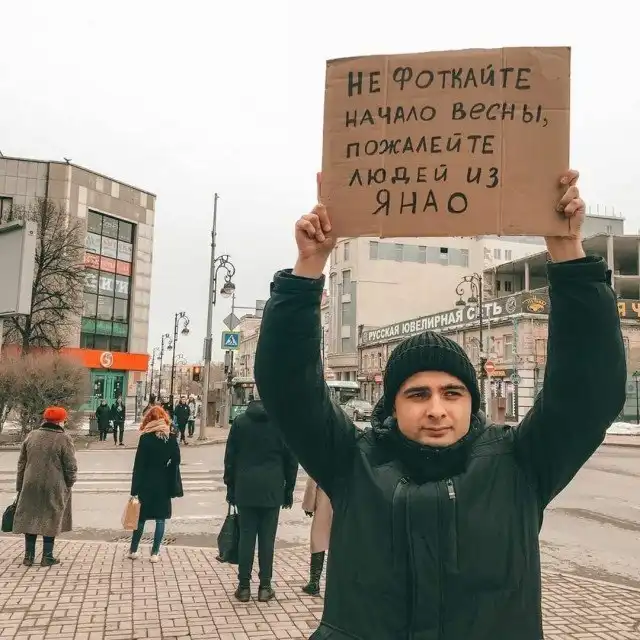 НЕ ФОТКАЙТЕ
НАЧАЛО ВЕСНЫ,
ПОЖАЛЕЙТЕ
ЛЮДЕЙ ИЗ
ЯНАО
РУССКАЯ ЮВЕЛИРНАЯ СЕТЬ